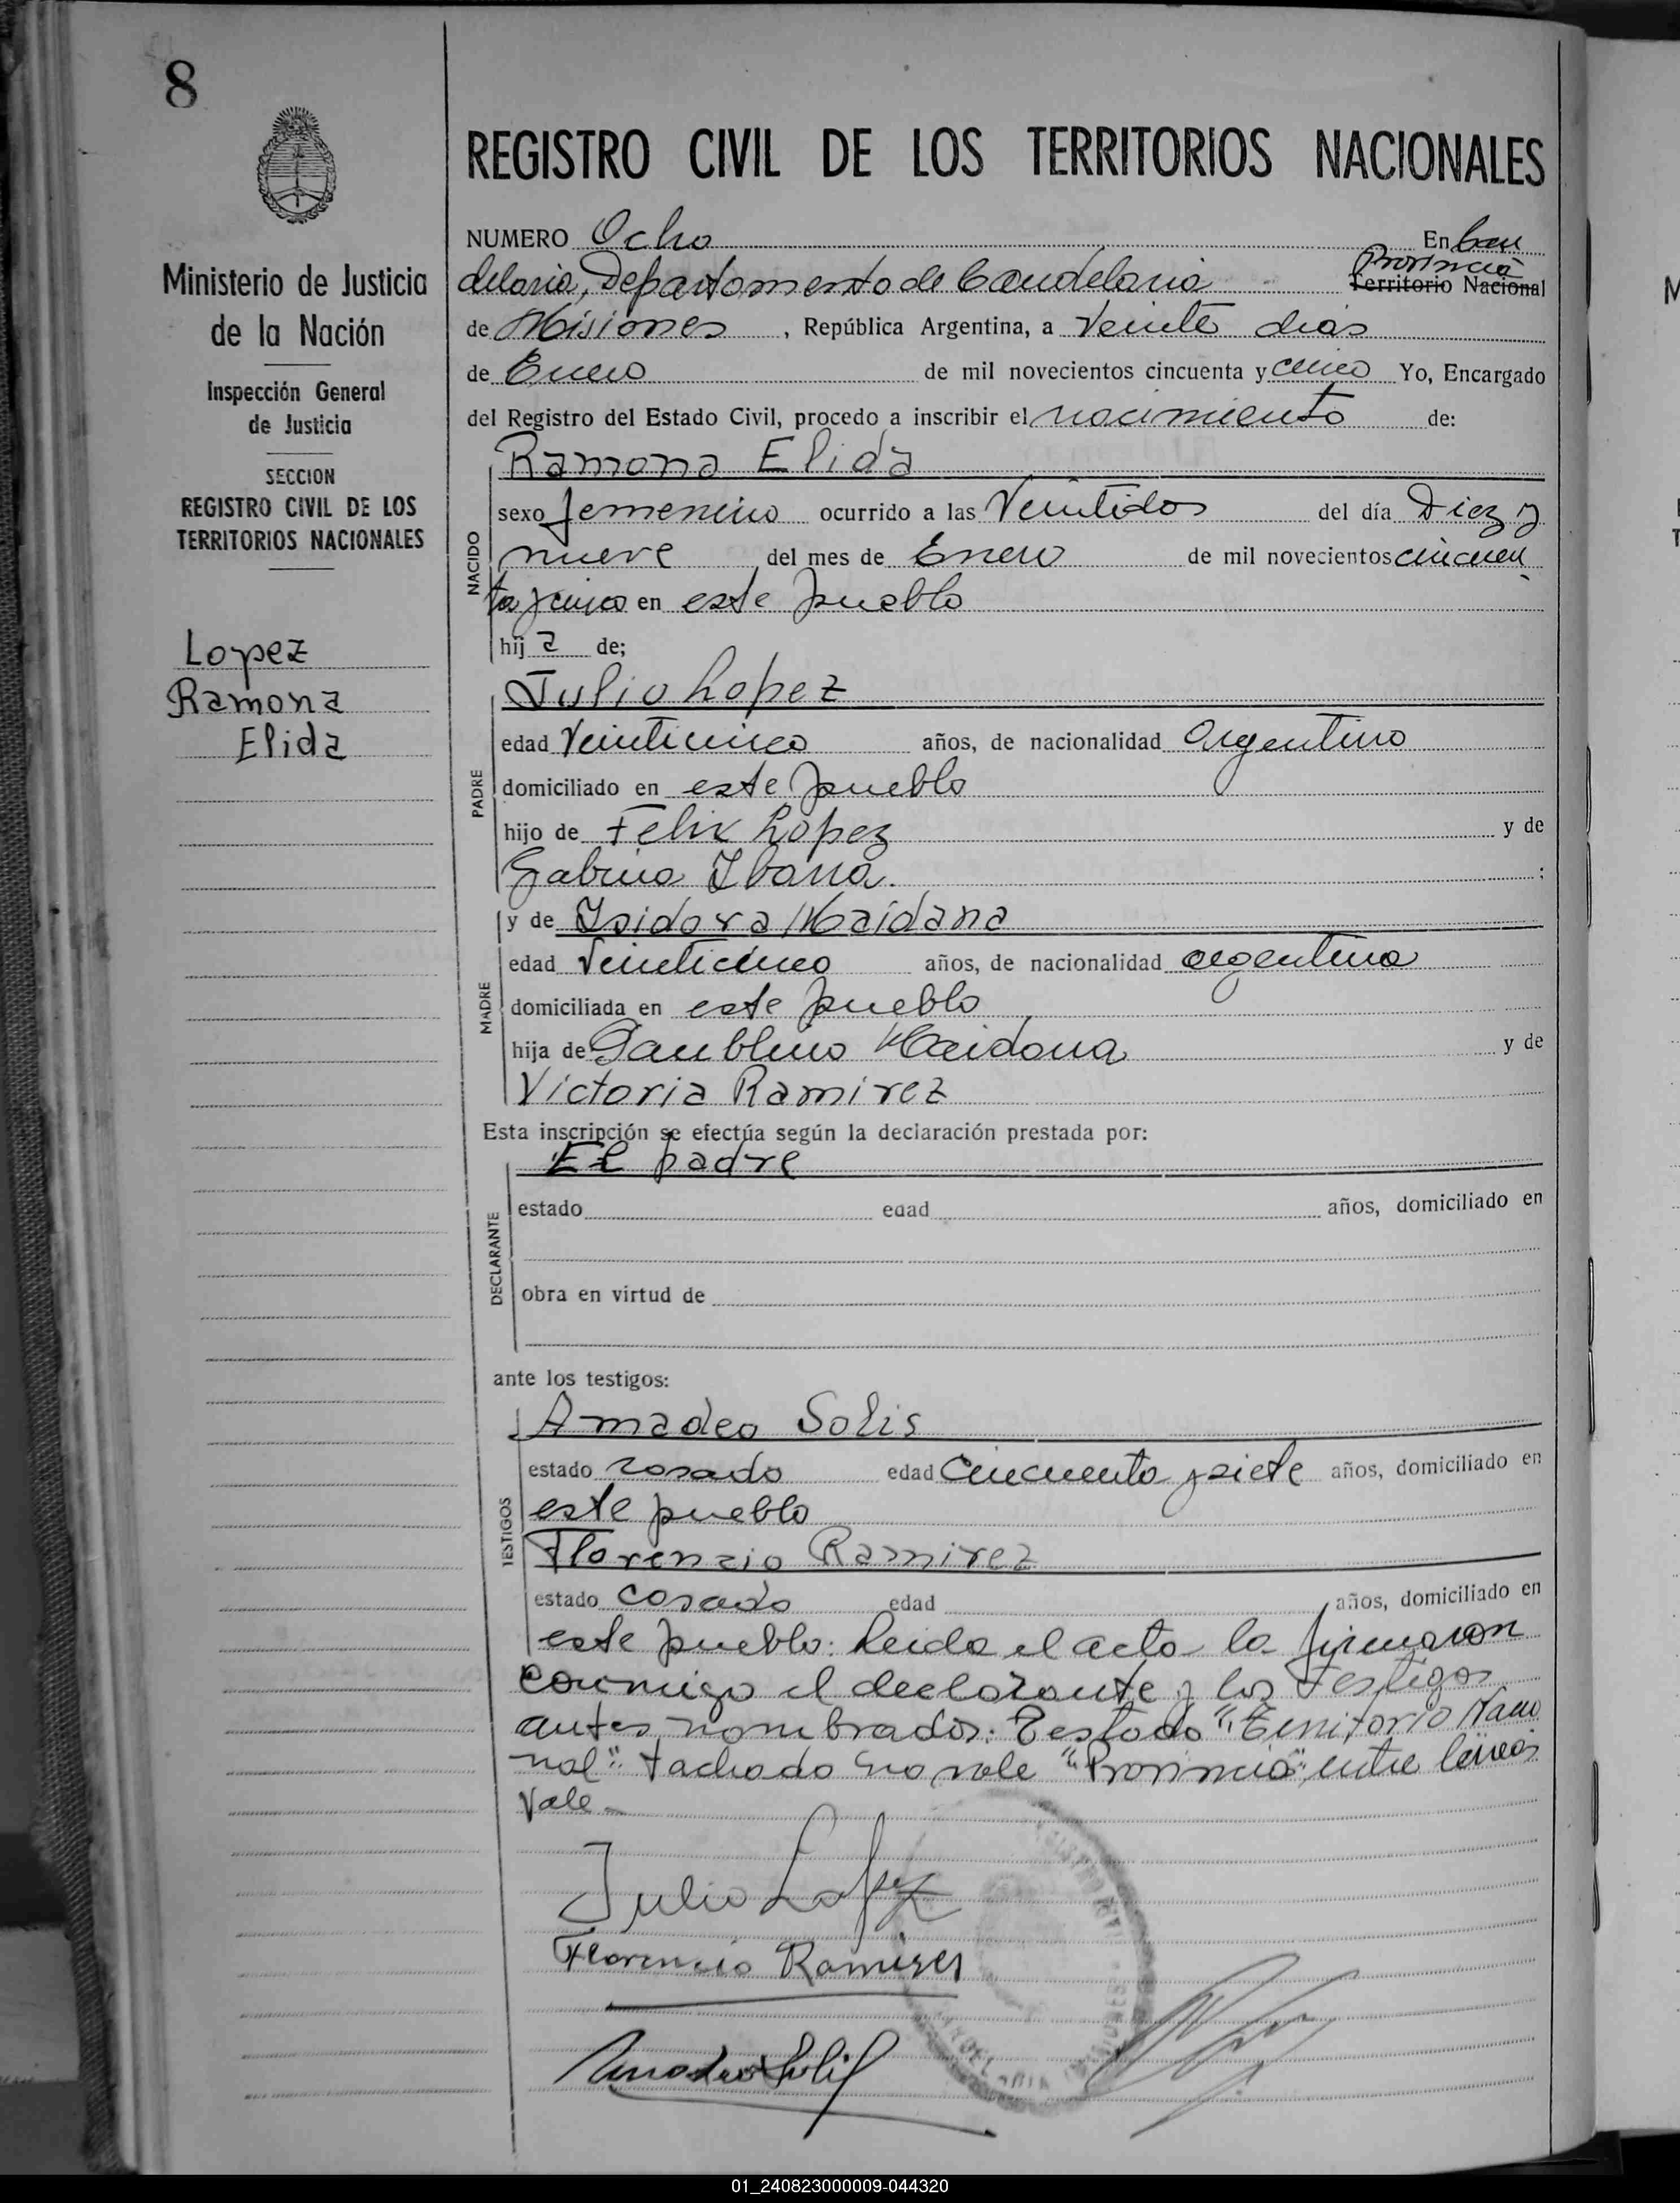 8
REGISTRO CIVIL DE LOS TERRITORIOS NACIONALES
Ministerio de Justicia
de la Nación
Inspección General
de Justicia
SECCION
REGISTRO CIVIL DE LOS
TERRITORIOS NACIONALES
Lopez
Ramona
Elida
NUMERO Ocho En Can
Provincia
delaria, Departamento de Candelaria Territorio Nacional
de Misiones, República Argentina, a Veinte dias
de Enero de mil novecientos cincuenta y cinco Yo, Encargado
del Registro del Estado Civil, procedo a inscribir el nacimiento de:
Ramona Elida
NACIDO
sexo femenino ocurrido a las Veintidos del día Diez y
nueve del mes de Enero de mil novecientos cincuen
ta y cinco en este pueblo
hij a de;
Julio Lopez
PADRE
edad Veinticinco años, de nacionalidad Argentino
domiciliado en este pueblo
hijo de Felix Lopez y de
Gabina Ibarra. ;
y de Isidora Maidana
MADRE
edad Veinticinco años, de nacionalidad argentina
domiciliada en este pueblo
hija de Maidana y de
Victoria Ramirez
Esta inscripción se efectúa según la declaración prestada por:
El padre
DECLARANTE
estado edad años, domiciliado en
obra en virtud de
ante los testigos:
Amadeo Solis
TESTIGOS
estado casado edad Cincuenta y siete años, domiciliado en
este pueblo
Florencio Ramirez
estado casado edad años, domiciliado en
este pueblo: Leida el acta la firmaron
conmigo el declarante y los testigos
antes nombrados: Testado "Territorio Nacio
nal" tachado no vale "Provincia" entre lineas
Vale
Julio Lopez
Florencio Ramires
Amadeo Solis
01_240823000009-044320